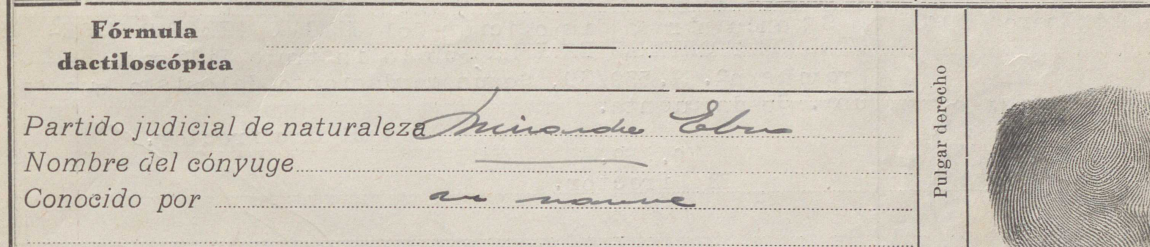 Fórmula
dactiloscópica
Partido judicial de naturaleza Miranda Ebro
Nombre del cónyuge
Conocido por su nombre
Pulgar derecho